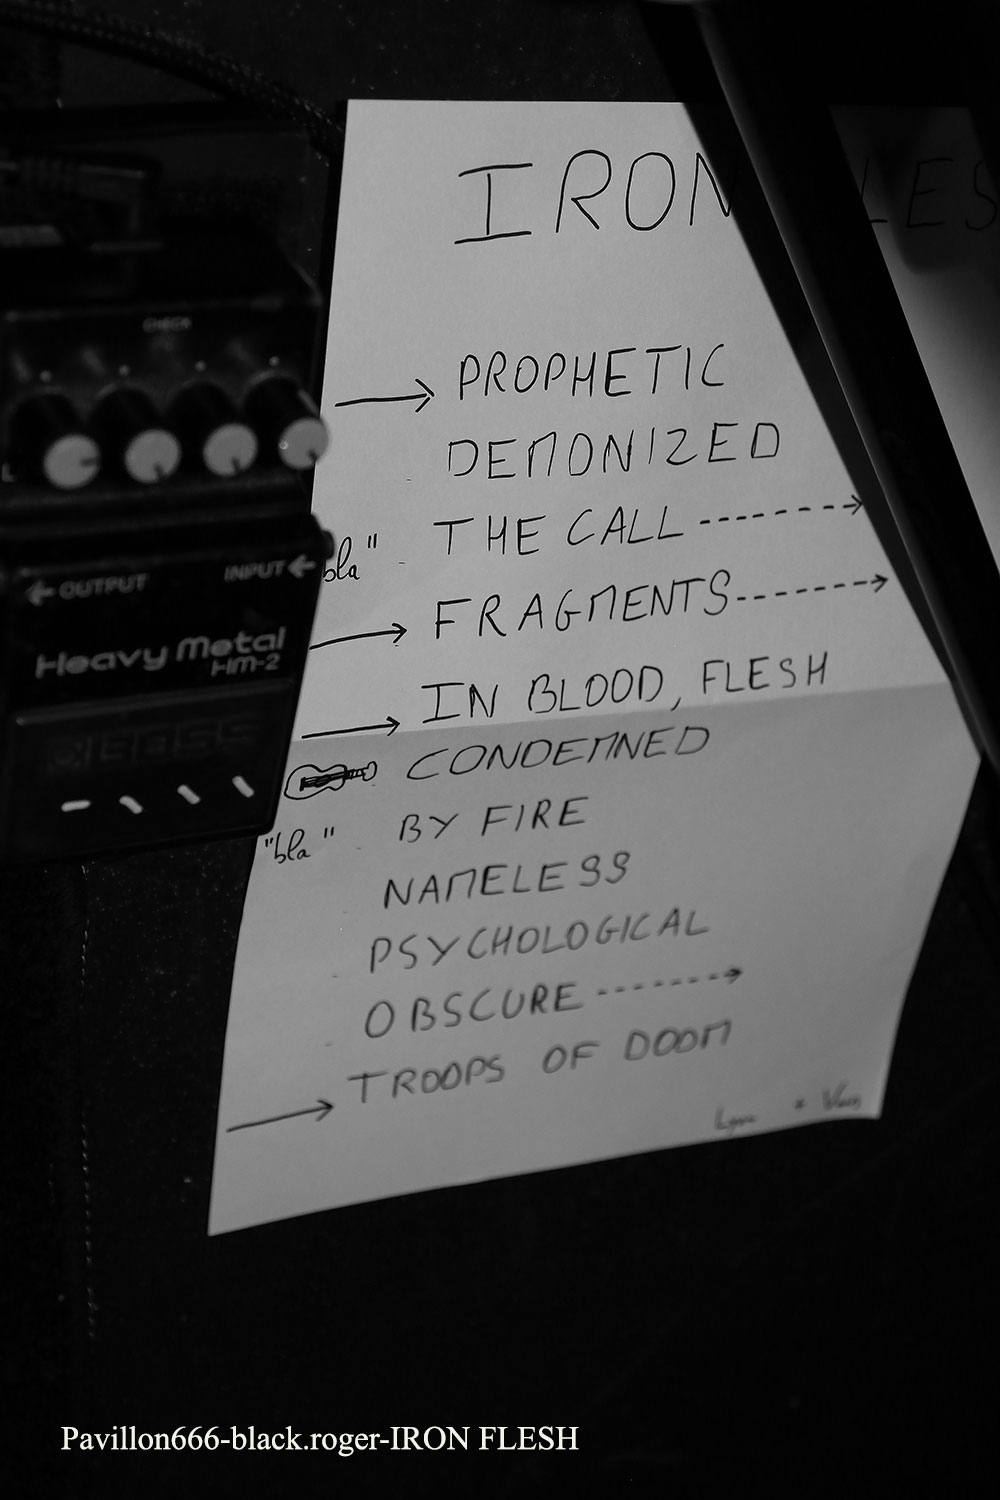 IRON LES
CHECK
PROPHETIC
DEMONIZED
"bla" THE CALL
FRAGMENTS
IN BLOOD, FLESH
CONDEMNED
"bla" BY FIRE
NAMELESS
PSYCHOLOGICAL
OBSCURE
TROOPS OF DOOM
OUTPUT INPUT
Heavy Metal
HM-2
BOSS
Pavillon666-black.roger-IRON FLESH